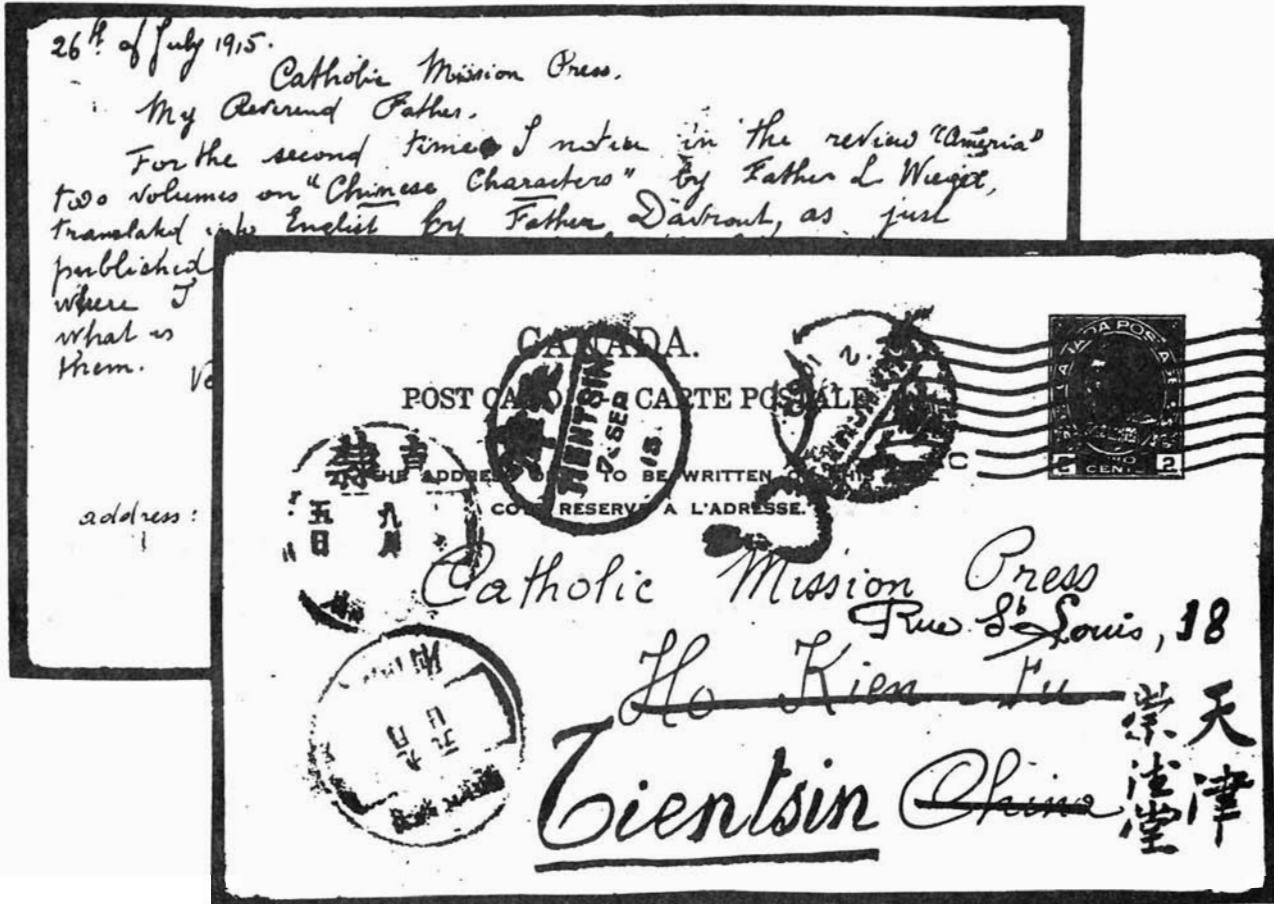 26th of July 1915.
Catholic Mission Press.
My Reverend Father.
For the second time I notice in the review "America"
two volumes on "Chinese Characters" by Father L Wieger,
translated into English by Father Davrout, as just
published
where I
what is
them.
address:
CANADA.
POST CARD CARTE POSTALE
THE ADDRESS TO BE WRITTEN ON THIS
COTÉ RESERVÉ A L'ADRESSE.
CANADA POSTAGE
2 TWO CENTS 2
天津
TIENTSIN
7 SEP
15
直隸
九月
五日
Catholic Mission Press
Rue St Louis, 18
Ho Kien Fu
Tientsin China
天津
崇德堂